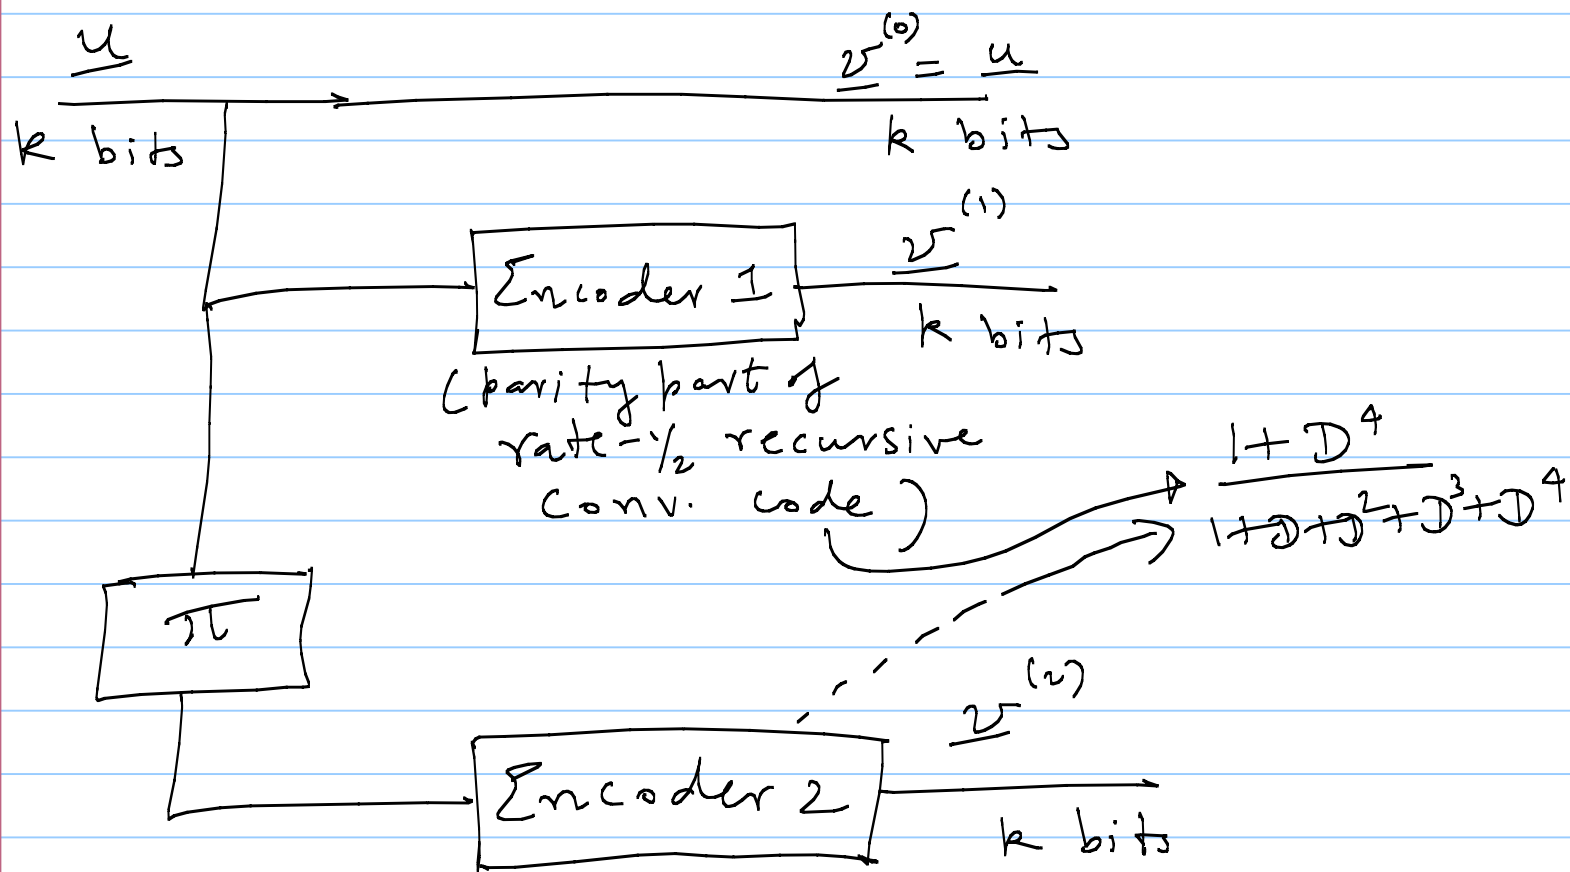 u
v^(0) = u
k bits
k bits
v^(1)
Encoder 1
k bits
(parity part of
rate-1/2 recursive
conv. code)
1+D^4
1+D+D^2+D^3+D^4
π
v^(2)
Encoder 2
k bits